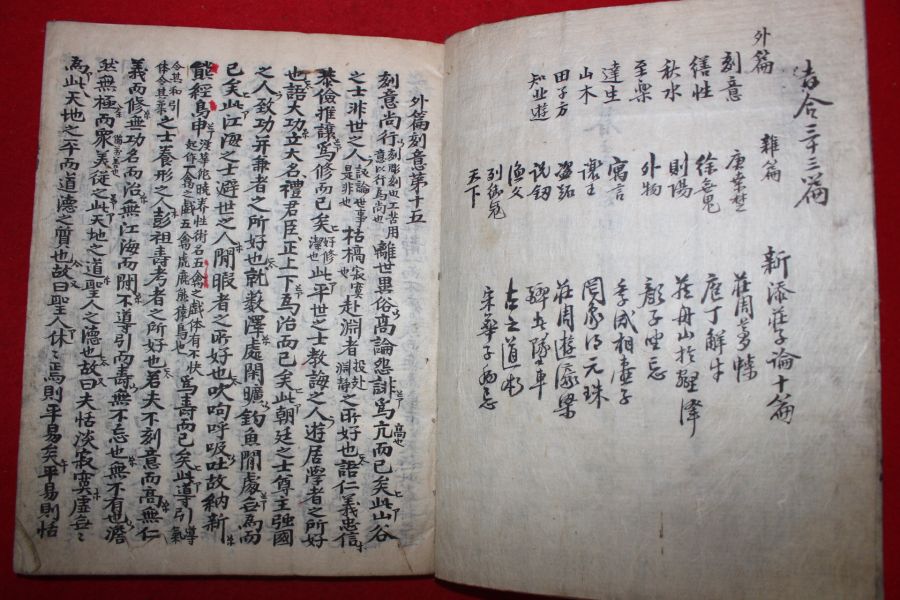 右合三十三篇
外篇
刻意
繕性
秋水
至樂
達生
山木
田子方
知北遊
雜篇
庚桑楚
徐无鬼
則陽
外物
寓言
讓王
盜跖
說釰
漁父
列御寇
天下
新添莊子論十篇
莊周夢蝶
庖丁解牛
藏舟山於壑澤
顏子坐忘
季咸相壺子
罔象得元珠
莊周遊濠梁
醉者墜車
古之道術
宋華子病忘
外篇刻意第十五
刻意尚行刻彫刻也工苦用意以行爲尚也離世異俗高論怨誹爲亢高也而已矣此山谷
之士非世之人議論世事是非也枯槁寂寞赴淵者投處淵靜之所好也語仁義忠信
恭儉推讓爲修而已矣好修潔也此平世之士教誨之人遊居學者之所好
也語大功立大名禮君臣正上下爲治而已矣此朝廷之士尊主強國
之人致功并兼者之所好也就藪澤處閒曠釣魚閒處無爲而
已矣此江海之士避世之人閒暇者之所好也吹呴呼吸吐故納新
熊經鳥申華佗曉養性術名五禽之戲体有不快起作一禽之戲五禽虎鹿熊猿鳥也爲壽而已矣此導引導氣
令其和引体令其柔之士養形之人彭祖壽考者之所好也若夫不刻意而高無仁
義而修無功名而治無江海而閒不導引而壽無不忘也無不有也澹
然無極而衆美從之此天地之道聖人之德也故曰夫恬淡寂寞虛無〻
爲此天地之平而道德之質也故曰聖人休〻焉則平易矣平易則恬